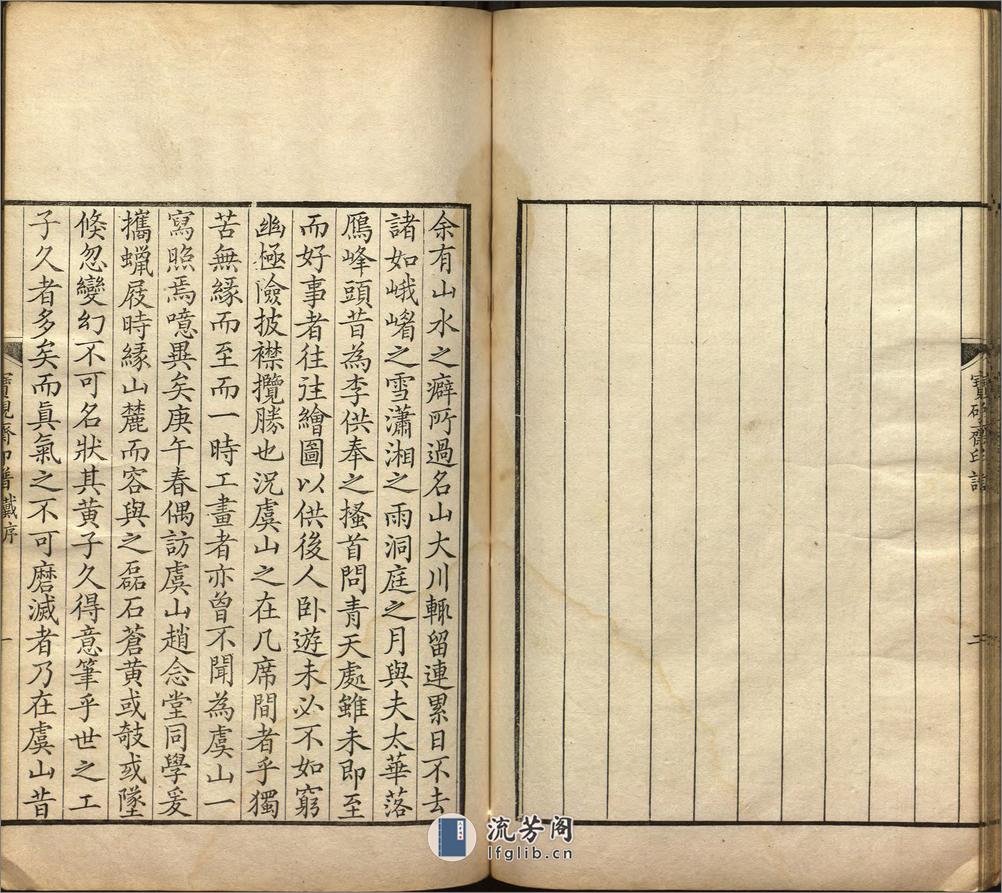 寶硯齋印譜
二
余有山水之癖所過名山大川輒留連累日不去
諸如峨嵋之雪瀟湘之雨洞庭之月與夫太華落
鴈峰頭昔為李供奉之搔首問青天處雖未即至
而好事者往往繪圖以供後人卧遊未必不如窮
幽極險披襟攬勝也況虞山之在几席間者乎獨
苦無緣而至而一時工畫者亦曾不聞為虞山一
寫照焉噫異矣庚午春偶訪虞山趙念堂同學爰
攜蠟屐時緣山麓而容與之磊石蒼黄或攲或墜
倐忽變幻不可名狀其黄子久得意筆乎世之工
子久者多矣而眞氣之不可磨滅者乃在虞山昔
寶硯齋印譜戴序
一
流芳阁
lfglib.cn